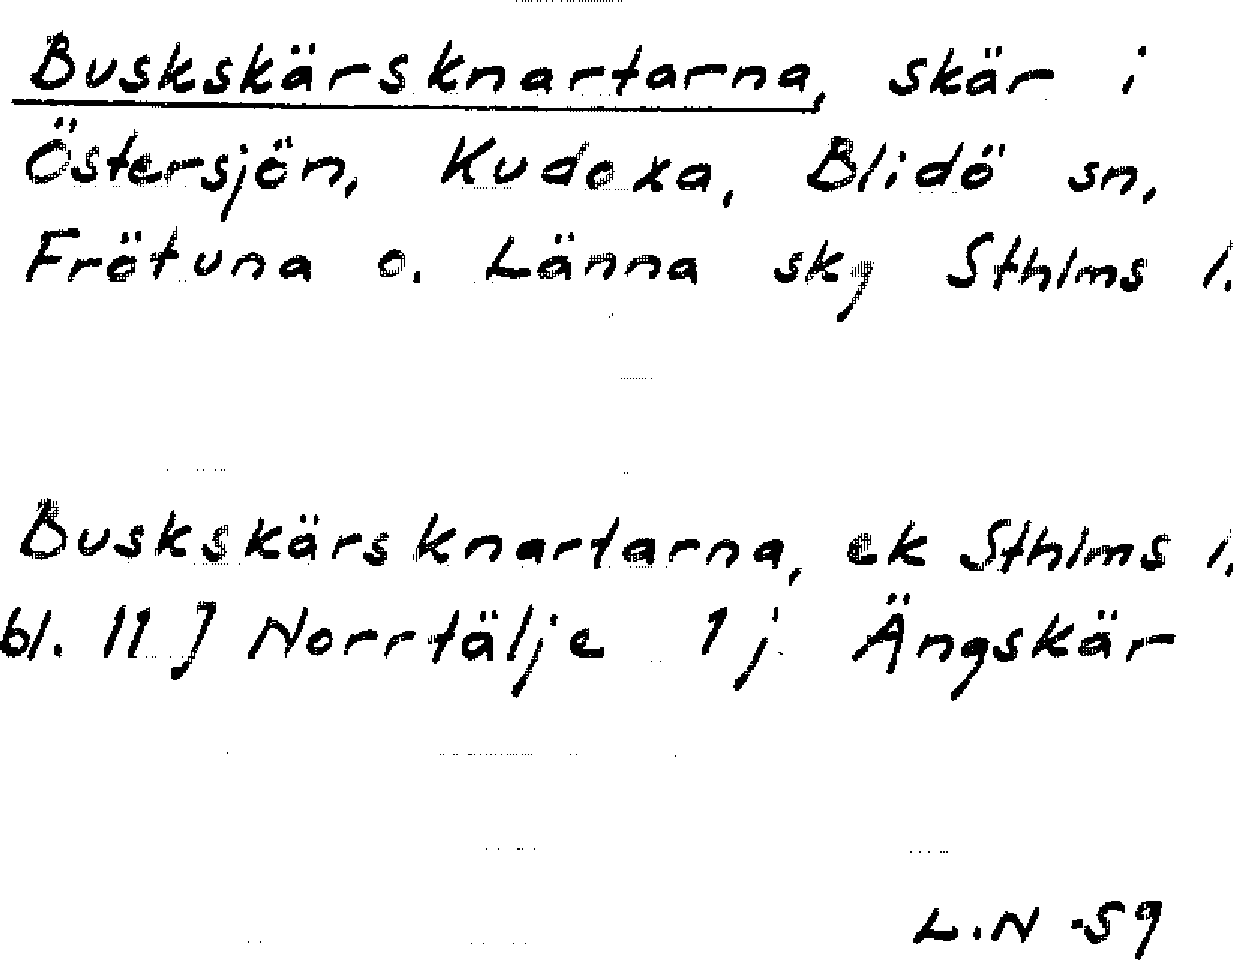 Buskskärsknartarna, skär i
Östersjön, Kudoxa, Blidö sn,
Frötuna o. Länna skg Sthlms l.
Buskskärsknartarna, ek Sthlms l.
bl. 11 J Norrtälje 1 j. Ängskär
L.N -59